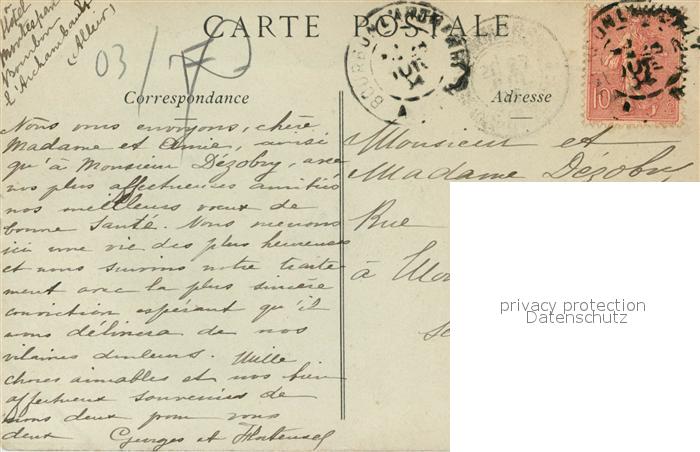 Hôtel
Montespan
Bourbon
l'Archambault
(Allier)
CARTE POSTALE
03/
BOURBON L'ARCHAMBAULT
10
Correspondance
Nous vous envoyons, chère
Madame et Amie, ainsi
qu'à Monsieur Dézobry, avec
nos plus affectueuses amitiés
nos meilleurs vœux de
bonne santé. Nous menons
ici une vie des plus heureuses
et nous suivons notre traite-
ment avec la plus sincère
conviction espérant qu'il
nous délivrera de nos
vilaines douleurs. Mille
choses aimables et nos bien
affectueux souvenirs de
nous deux pour vous
deux Georges et Hortense
Adresse
Monsieur et
Madame Dézobry
Rue
à
privacy protection
Datenschutz